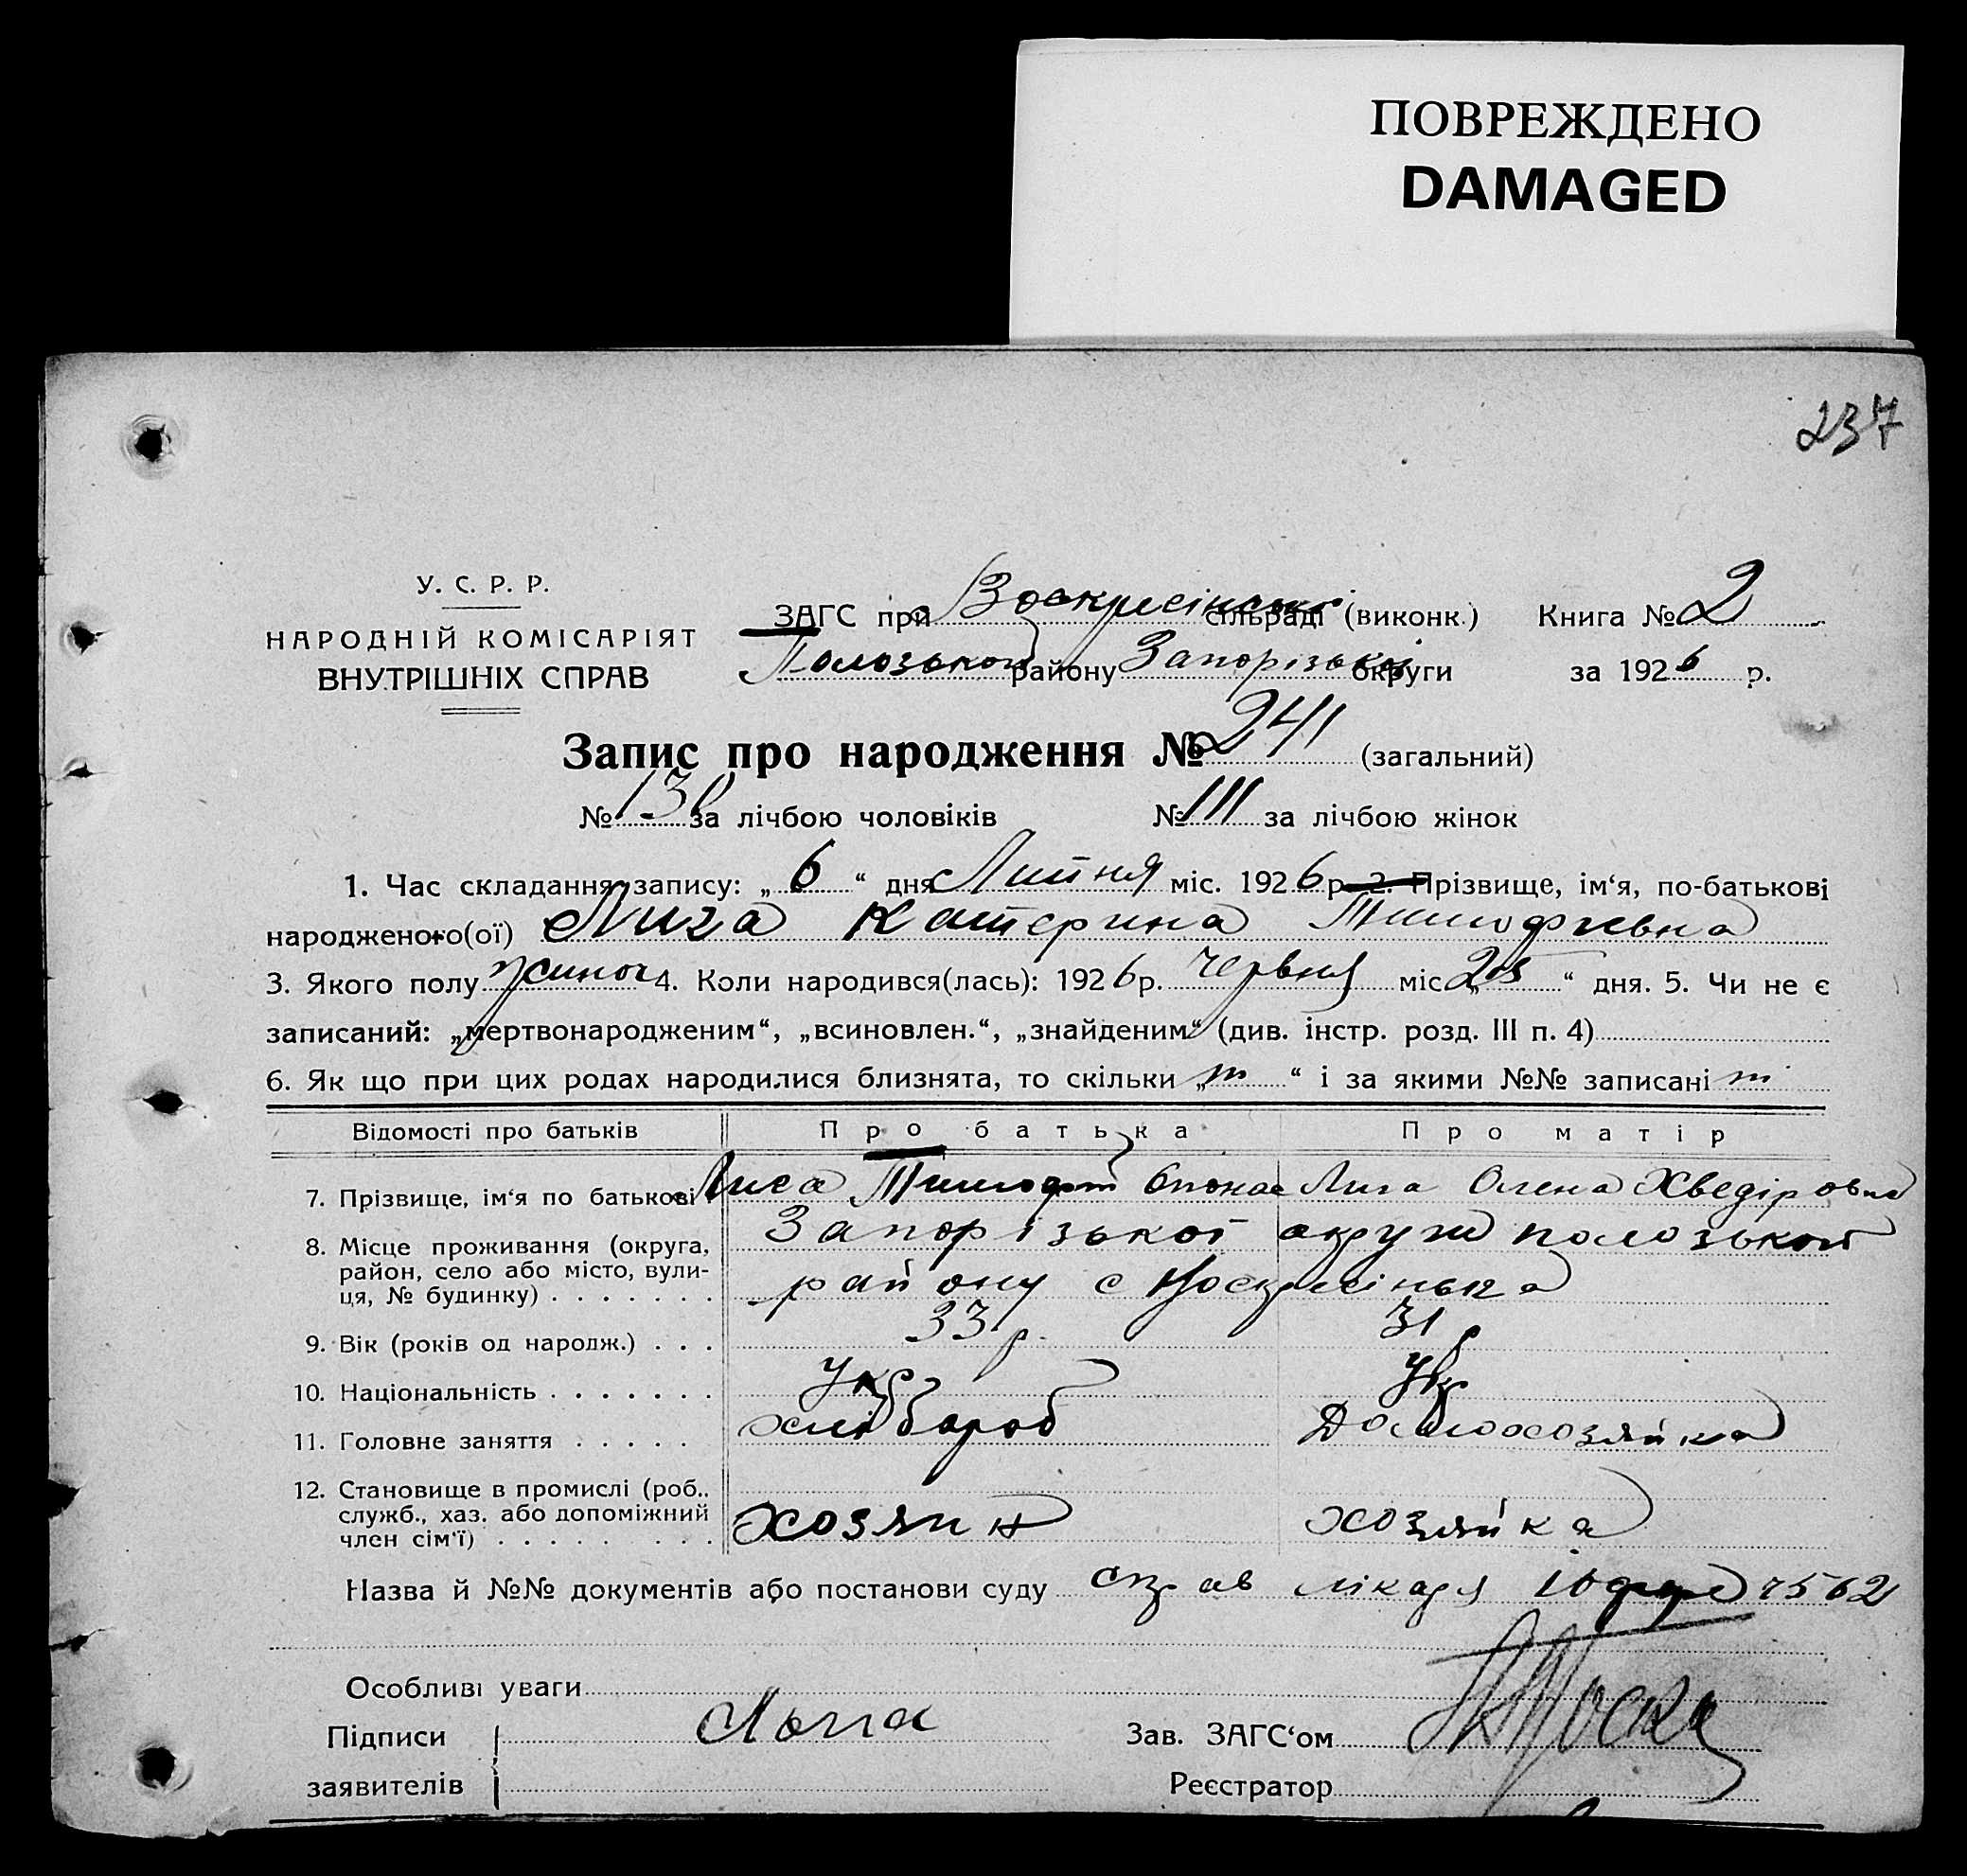 ПОВРЕЖДЕНО
DAMAGED
237
У. С. Р. Р.
НАРОДНІЙ КОМІСАРІЯТ
ВНУТРІШНІХ СПРАВ
ЗАГС при Воскресінській сільраді (виконк.) Книга № 2
Полозького району Запорізької округи за 1926 р.
Запис про народження № 241 (загальний)
№ 130 за лічбою чоловіків № 111 за лічбою жінок
1. Час складання запису: „ 6 “ дня Липня міс. 1926 р. 2. Прізвище, ім‘я, по-батькові
народженого(ої) Лига Катерина Тимофіевна
3. Якого полу жиноч 4. Коли народився(лась): 1926 р. червня міс. „25“ дня. 5. Чи не є
записаний: „мертвонародженим“, „всиновлен.“, „знайденим“ (див. інстр. розд. III п. 4)
6. Як що при цих родах народилися близнята, то скільки „ “ і за якими №№ записані
Відомості про батьків Про батька Про матір
7. Прізвище, ім‘я по батькові Лига Тимофій Опонас Лига Олена Хведіровна
8. Місце проживання (округа, район, село або місто, вулиця, № будинку) Запорізької округи полозького
району с Воскресінька
9. Вік (років од народж.) 33 р. 31 р
10. Національність Укр Укр
11. Головне заняття хлібороб Домохозяйка
12. Становище в промислі (роб., служб., хаз. або допоміжний член сім‘ї) хозяин хозяйка
Назва й №№ документів або постанови суду справ лікаря 7562
Особливі уваги
Підписи Лыга Зав. ЗАГС‘ом
заявителів Реєстратор